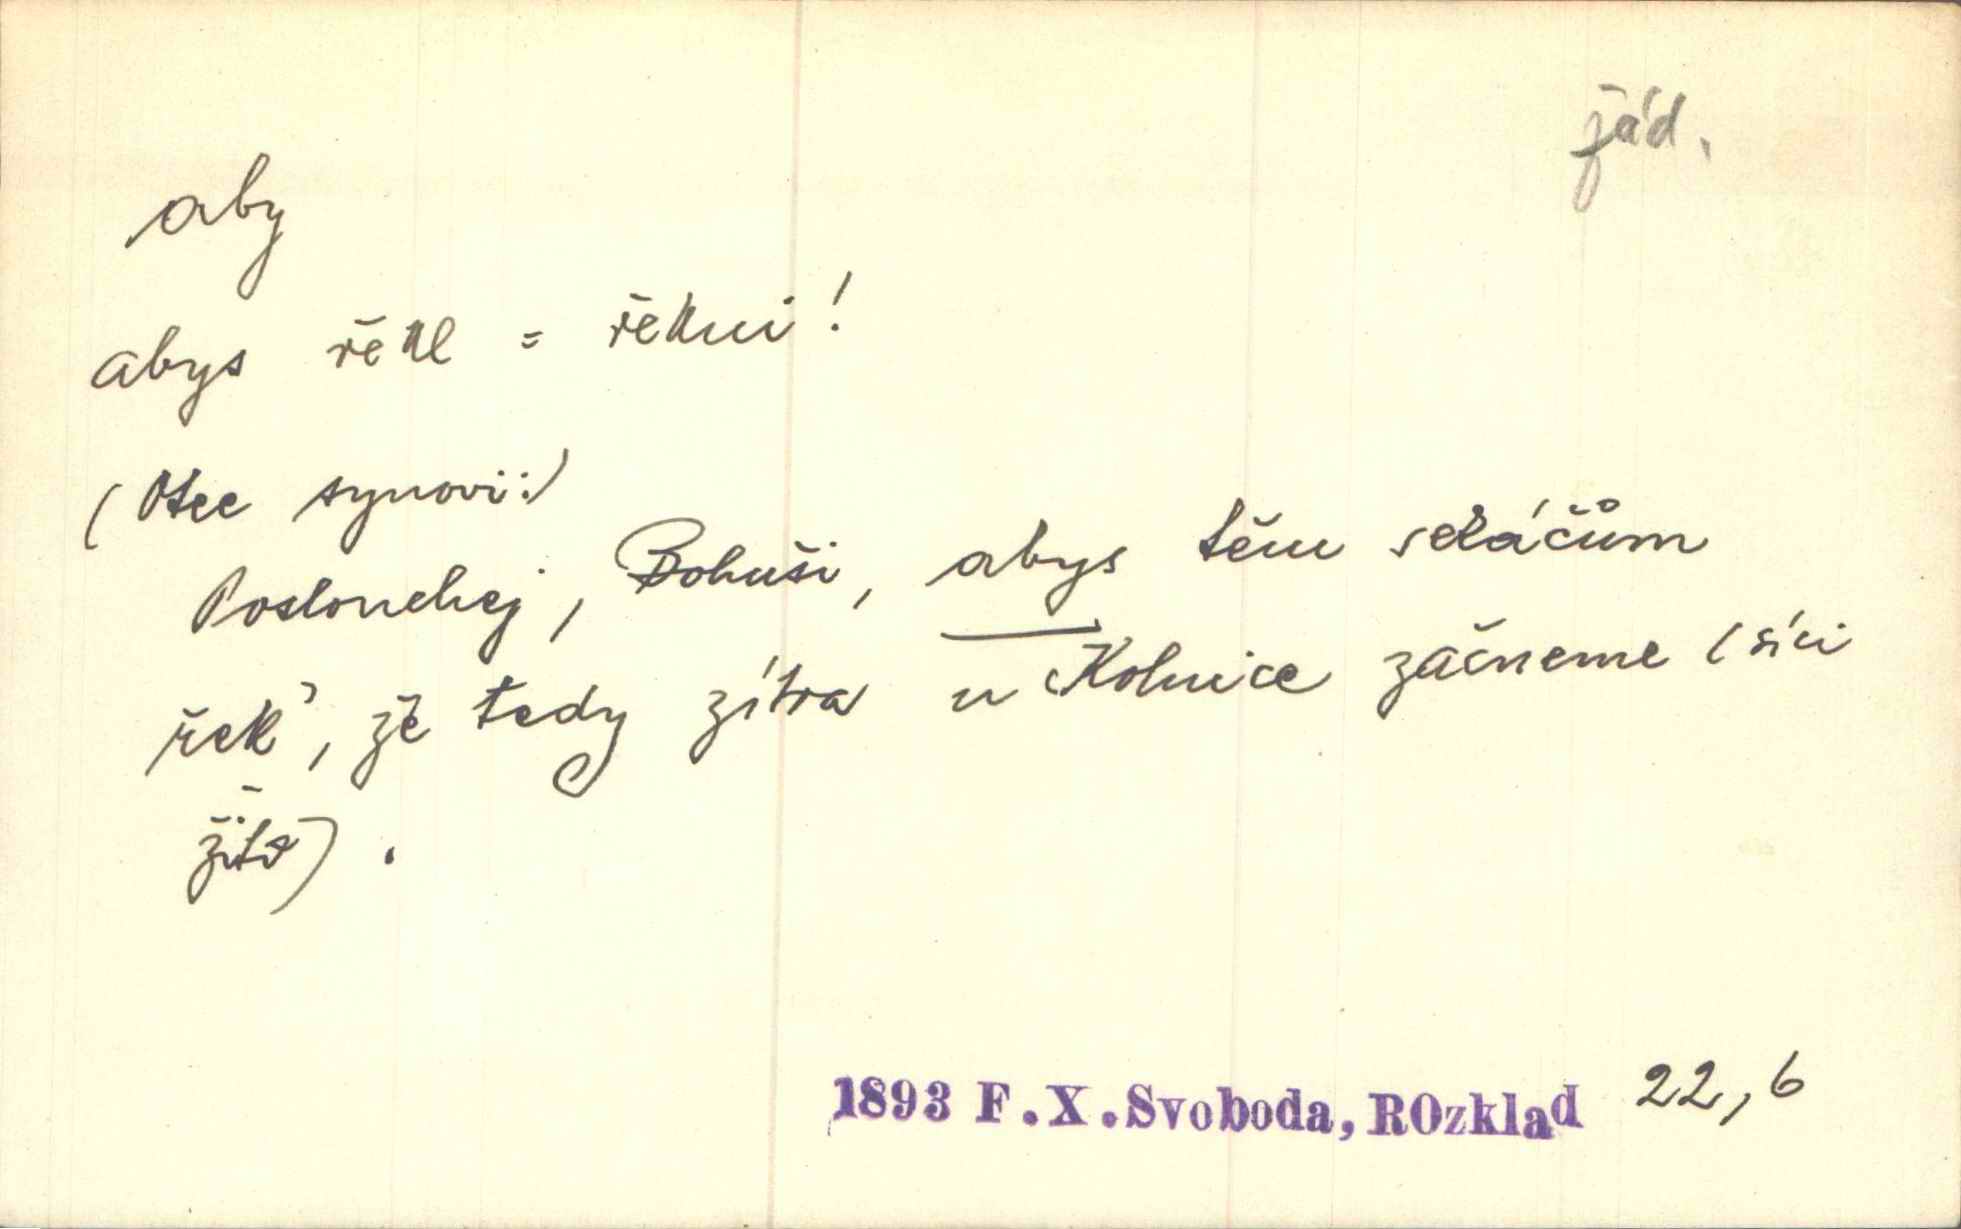 jád.
aby
abys řekl = řekni!
(Otec synovi:)
Poslouchej, Bohuši, abys těm sekáčům
řek', že tedy zítra u Kolnice začneme (síci
žito).
1893 F.X.Svoboda, ROzklad 22,6